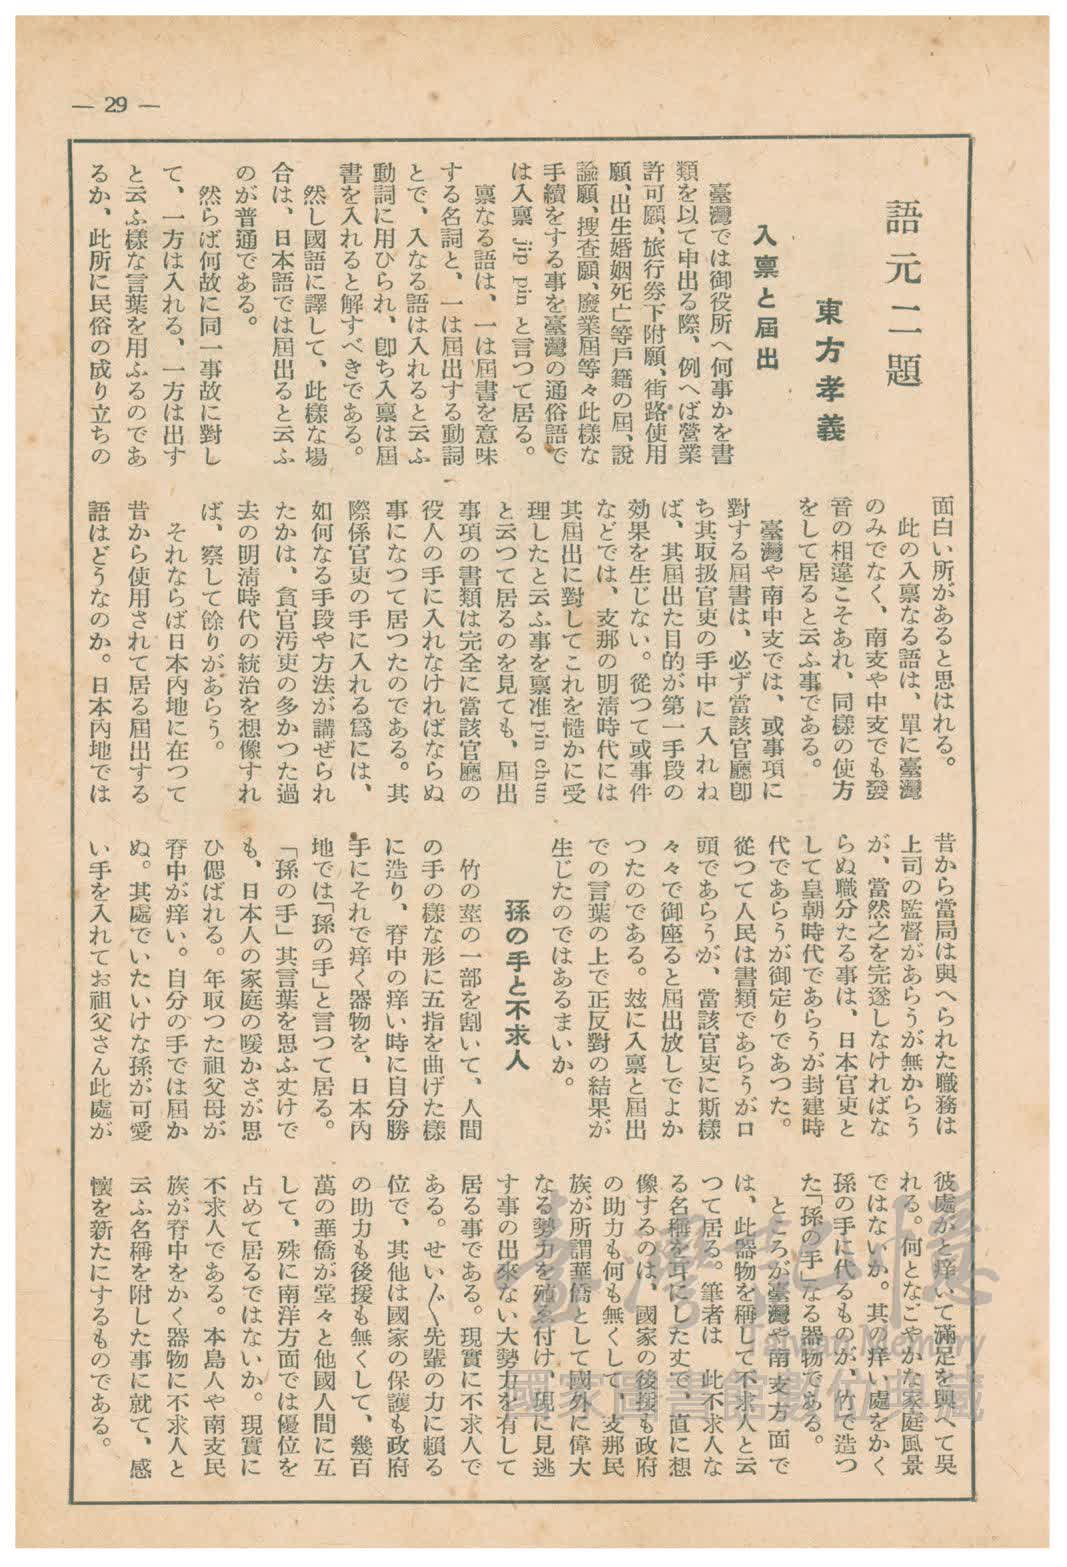 — 29 —
語元二題
東方孝義
入稟と屆出
臺灣では御役所へ何事かを書
類を以て申出る際、例へば營業
許可願、旅行券下附願、街路使用
願、出生婚姻死亡等戶籍の屆、說
諭願、搜查願、廢業屆等々此樣な
手續をする事を臺灣の通俗語で
は入稟 jip pin と言つて居る。
稟なる語は、一は屆書を意味
する名詞と、一は屆出する動詞
とで、入なる語は入れると云ふ
動詞に用ひられ、卽ち入稟は屆
書を入れると解すべきである。
然し國語に譯して、此樣な場
合は、日本語では屆出ると云ふ
のが普通である。
然らば何故に同一事故に對し
て、一方は入れる、一方は出す
と云ふ樣な言葉を用ふるのであ
るか、此所に民俗の成り立ちの
面白い所があると思はれる。
此の入稟なる語は、單に臺灣
のみでなく、南支や中支でも發
音の相違こそあれ、同樣の使方
をして居ると云ふ事である。
臺灣や南中支では、或事項に
對する屆書は、必ず當該官廳卽
ち其取扱官吏の手中に入れね
ば、其屆出た目的が第一手段の
効果を生じない。從つて或事件
などでは、支那の明淸時代には
其屆出に對してこれを慥かに受
理したと云ふ事を稟准pin chun
と云つて居るのを見ても、屆出
事項の書類は完全に當該官廳の
役人の手に入れなければならぬ
事になつて居つたのである。其
際係官吏の手に入れる爲には、
如何なる手段や方法が講ぜられ
たかは、貪官汚吏の多かつた過
去の明淸時代の統治を想像すれ
ば、察して餘りがあらう。
それならば日本內地に在つて
昔から使用されて居る屆出する
語はどうなのか。日本內地では
昔から當局は與へられた職務は
上司の監督があらうが無からう
が、當然之を完遂しなければな
らぬ職分たる事は、日本官吏と
して皇朝時代であらうが封建時
代であらうが御定りであつた。
從つて人民は書類であらうが口
頭であらうが、當該官吏に斯樣
々々で御座ると屆出放しでよか
つたのである。玆に入稟と屆出
での言葉の上で正反對の結果が
生じたのではあるまいか。
孫の手と不求人
竹の莖の一部を割いて、人間
の手の樣な形に五指を曲げた樣
に造り、脊中の痒い時に自分勝
手にそれで痒く器物を、日本內
地では「孫の手」と言つて居る。
「孫の手」其言葉を思ふ丈けで
も、日本人の家庭の暖かさが思
ひ偲ばれる。年取つた祖父母が
脊中が痒い。自分の手では屆か
ぬ。其處でいたいけな孫が可愛
い手を入れてお祖父さん此處が
彼處がと痒いて滿足を與へて吳
れる。何となごやかな家庭風景
ではないか。其の痒い處をかく
孫の手に代るものが、竹で造つ
た「孫の手」なる器物である。
ところが臺灣や南支方面で
は、此器物を稱して不求人と云
つて居る。筆者は 此不求人な
る名稱を耳にした丈で、直に想
像するのは、國家の後援も政府
の助力も何も無くして、支那民
族が所謂華僑として國外に偉大
なる勢力を殖ゑ付け、現に見逃
す事の出來ない大勢力を有して
居る事である。現實に不求人で
ある。せい〴〵先輩の力に賴る
位で、其他は國家の保護も政府
の助力も後援も無くして、幾百
萬の華僑が堂々と他國人間に互
して、殊に南洋方面では優位を
占めて居るではないか。現實に
不求人である。本島人や南支民
族が脊中をかく器物に不求人と
云ふ名稱を附した事に就て、感
懷を新たにするものである。
臺灣記憶
Taiwan Memory
國家圖書館數位典藏